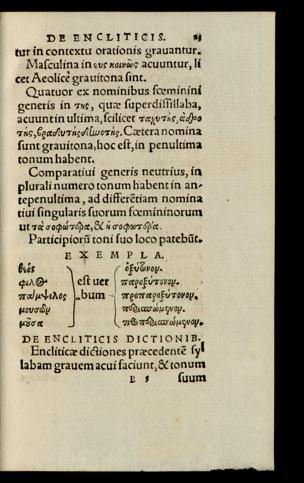 DE ENCLITICIS. 25
tur in contextu orationis grauantur.
Masculina in ευς κοινῶς acuuntur, li
cet Aeolicè grauitona sint.
Quatuor ex nominibus fœminini
generis in της, quæ superdistillaba,
acuunt in ultima, scilicet ταχυτής, ἁδρο
τής, βραδυτής δἰμοτής. Cætera nomina
sunt grauitona, hoc est, in penultima
tonum habent.
Comparatiui generis neutrius, in
plurali numero tonum habent in an-
tepenultima, ad differẽtiam nomina
tiui singularis suorum fœmininorum
ut τὰ σοφώτερα, & ἡ σοφωτέρα.
Participiorũ toni suo loco patebũt.
EXEMPLA.
θεός ὀξύτονον.
φίλος est uer παροξύτονον.
πάμψιλος bum προπαροξύτονον.
μουσῶν περισπώμενον.
μοῦσα προπερισπώμενον.
DE ENCLITICIS DICTIONIB.
Encliticæ dictiones præcedentẽ syl
labam grauem acui faciunt, & tonum
E 5 suum